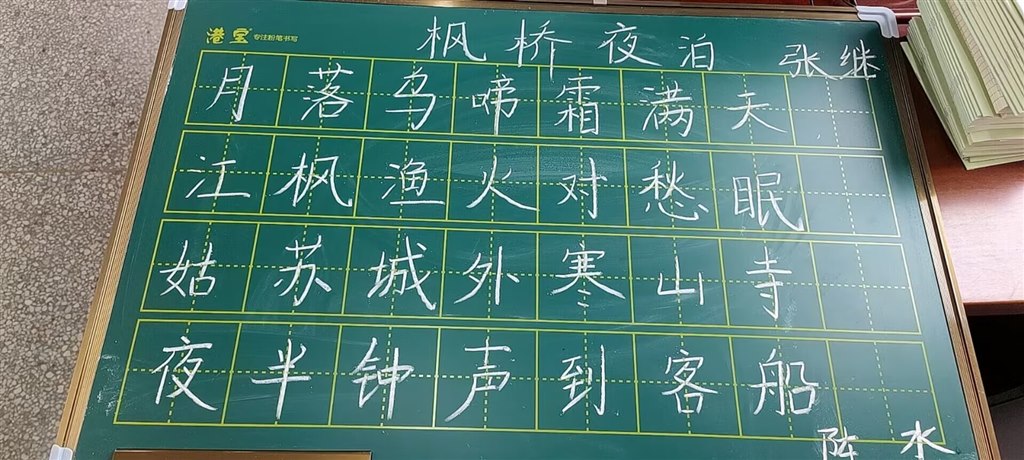 港宝 专注粉笔书写
枫桥夜泊 张继
月落乌啼霜满天
江枫渔火对愁眠
姑苏城外寒山寺
夜半钟声到客船
阵水